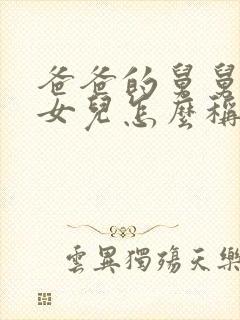 爸爸的舅舅
女兒怎麼稱
雲異獨殤天樂